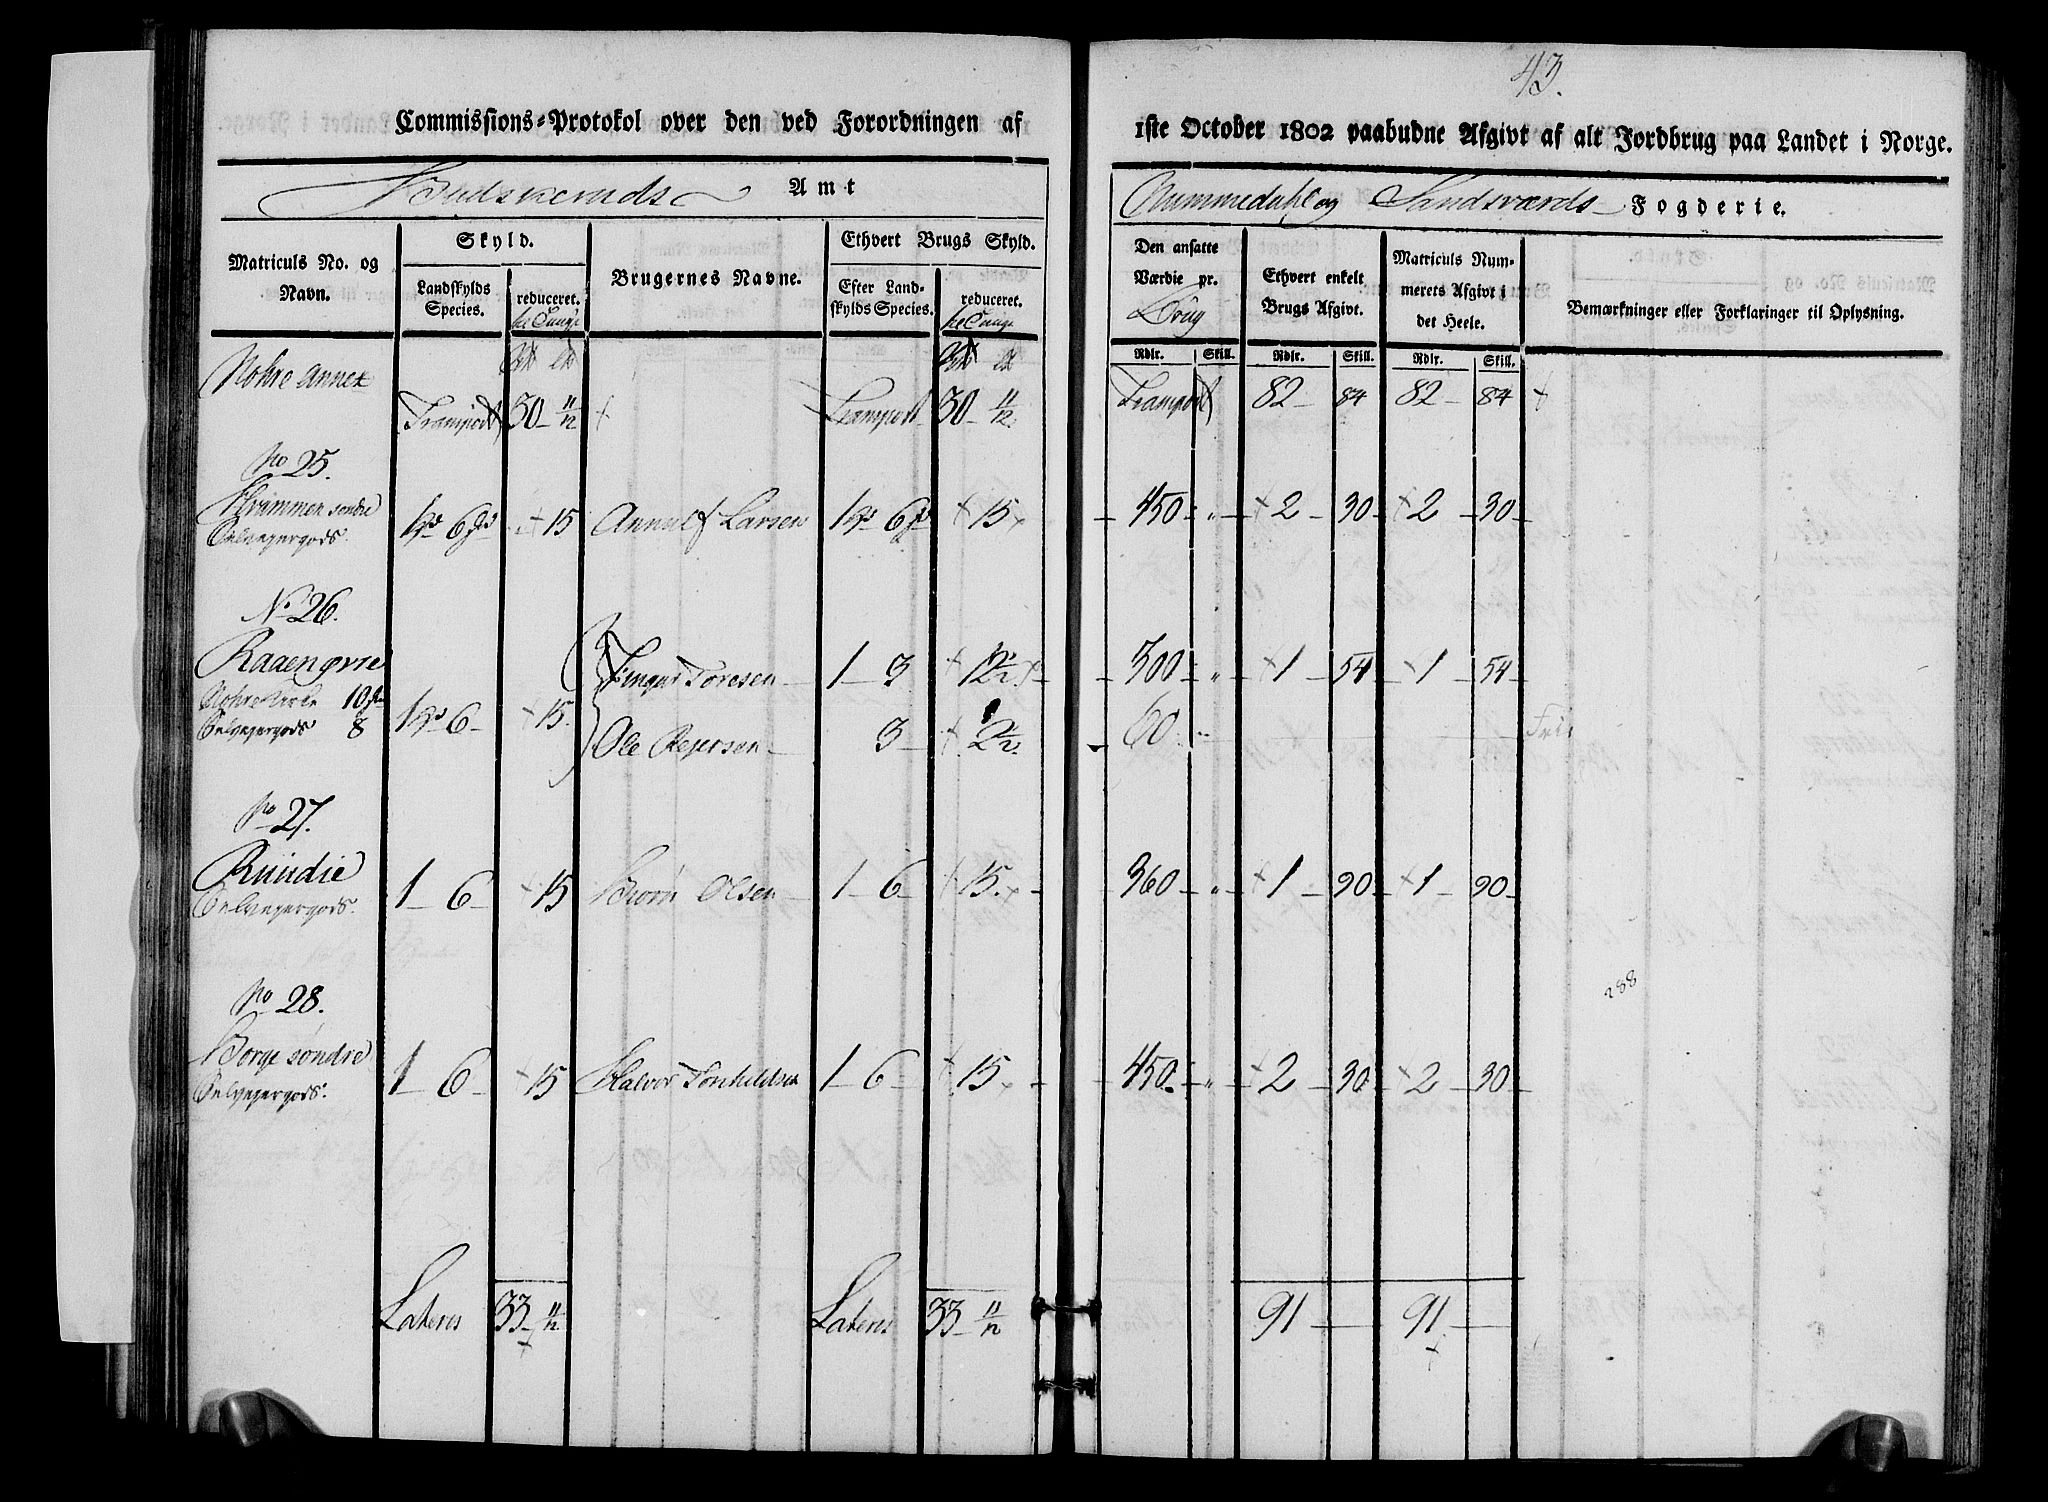 43.
Commissions-Protokol over den ved Forordningen af
1ste October 1802 paabudne Afgivt af alt Jordbrug paa Landet i Norge.
Budskeruds Amt
Nummedahl og Sandsværds Fogderie.
Matriculs No. og Navn.
Skyld.
Landskylds Species.
reduceret.
Brugernes Navne.
Ethvert Brugs Skyld.
Efter Landskylds Species.
reduceret.
Den ansatte Værdie pr. Brug
Ethvert enkelt Brugs Afgivt.
Matriculs Nummerets Afgivt i det Heele.
Bemærkninger eller Forklaringer til Oplysning.
Rdlr. Skill. Rdlr. Skill. Rdlr. Skill.
Nohre Annex
Transport 30 – 11/12 Transport 30 – 11/12 Transport 82 – 84 82 – 84
No 25.
søndre 15 Larsen 15 450 2 – 30 2 – 30
Selvejergods.
No 26.
Raaen øvre Toresen 1 – 3 12½ 300 1 – 54 1 – 54
10
Selvejergods 8 15. Ole 3 2½ 60 Fri
No 27.
Ruudie 1 – 6 15 Olsen 1 – 6 15 360 1 – 90 1 – 90
Selvejergods.
288
No 28.
Borge søndre 1 – 6 15 Halvor 1 – 6 15 450 2 – 30 2 – 30
Selvejergods.
Lateris 33 – 11/12 Lateris 33 – 11/12 91 – 91 –